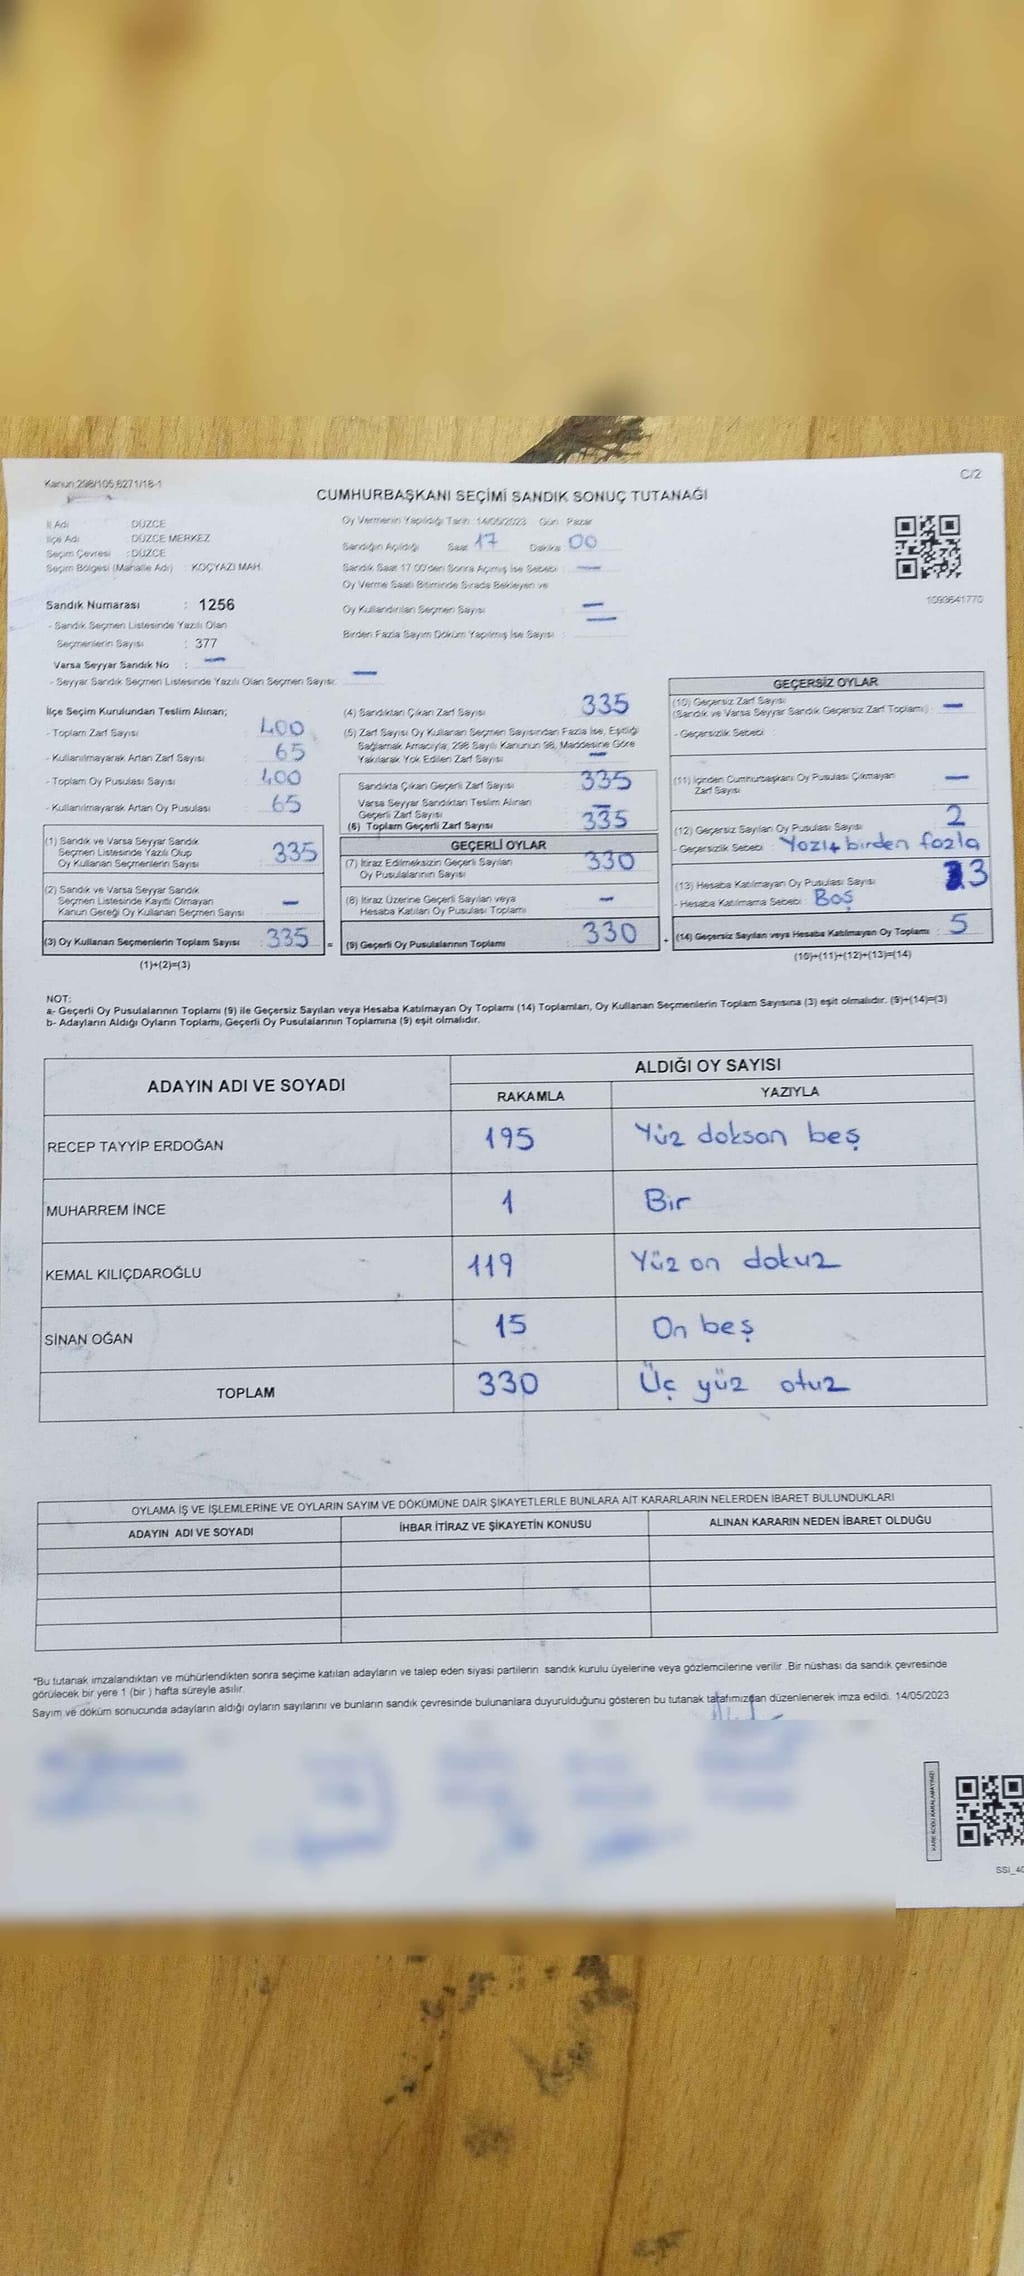 Kanun;298/105,6271/18-1
C/2
CUMHURBAŞKANI SEÇİMİ SANDIK SONUÇ TUTANAĞI
İl Adı DÜZCE
İlçe Adı : DÜZCE MERKEZ
Seçim Çevresi : DÜZCE
Seçim Bölgesi (Mahalle Adı) : KOÇYAZI MAH.
Sandık Numarası : 1256
- Sandık Seçmen Listesinde Yazılı Olan
Seçmenlerin Sayısı : 377
Varsa Seyyar Sandık No : —
- Seyyar Sandık Seçmen Listesinde Yazılı Olan Seçmen Sayısı: —
Oy Vermenin Yapıldığı Tarih : 14/05/2023 Gün : Pazar
Sandığın Açıldığı Saat : 17 Dakika : 00
Sandık Saat 17.00'den Sonra Açımış İse Sebebi : —
Oy Verme Saati Bitiminde Sırada Bekleyen ve
Oy Kullandırılan Seçmen Sayısı —
Birden Fazla Sayım Döküm Yapılmış İse Sayısı : —
1093641770
İlçe Seçim Kurulundan Teslim Alınan;
- Toplam Zarf Sayısı : 400
- Kullanılmayarak Artan Zarf Sayısı : 65
- Toplam Oy Pusulası Sayısı : 400
- Kullanılmayarak Artan Oy Pusulası : 65
(1) Sandık ve Varsa Seyyar Sandık
Seçmen Listesinde Yazılı Olup
Oy Kullanan Seçmenlerin Sayısı : 335
(2) Sandık ve Varsa Seyyar Sandık
Seçmen Listesinde Kayıtlı Olmayan
Kanun Gereği Oy Kullanan Seçmen Sayısı —
(3) Oy Kullanan Seçmenlerin Toplam Sayısı : 335 =
(1)+(2)=(3)
(4) Sandıktan Çıkan Zarf Sayısı : 335
(5) Zarf Sayısı Oy Kullanan Seçmen Sayısından Fazla İse, Eşitliği
Sağlamak Amacıyla; 298 Sayılı Kanunun 98. Maddesine Göre
Yakılarak Yok Edilen Zarf Sayısı : —
Sandıkta Çıkan Geçerli Zarf Sayısı : 335
Varsa Seyyar Sandıktan Teslim Alınan
Geçerli Zarf Sayısı : —
(6) Toplam Geçerli Zarf Sayısı : 335
GEÇERLİ OYLAR
(7) İtiraz Edilmeksizin Geçerli Sayılan
Oy Pusulalarının Sayısı : 330
(8) İtiraz Üzerine Geçerli Sayılan veya
Hesaba Katılan Oy Pusulası Toplamı : —
(9) Geçerli Oy Pusulalarının Toplamı : 330 +
GEÇERSİZ OYLAR
(10) Geçersiz Zarf Sayısı
(Sandık ve Varsa Seyyar Sandık Geçersiz Zarf Toplamı) : —
- Geçersizlik Sebebi :
(11) İçinden Cumhurbaşkanı Oy Pusulası Çıkmayan
Zarf Sayısı : —
(12) Geçersiz Sayılan Oy Pusulası Sayısı : 2
- Geçersizlik Sebebi : Yazı+birden fazla
(13) Hesaba Katılmayan Oy Pusulası Sayısı : 3
- Hesaba Katılmama Sebebi : Boş
(14) Geçersiz Sayılan veya Hesaba Katılmayan Oy Toplamı : 5
(10)+(11)+(12)+(13)=(14)
NOT:
a- Geçerli Oy Pusulalarının Toplamı (9) ile Geçersiz Sayılan veya Hesaba Katılmayan Oy Toplamı (14) Toplamları, Oy Kullanan Seçmenlerin Toplam Sayısına (3) eşit olmalıdır. (9)+(14)=(3)
b- Adayların Aldığı Oyların Toplamı, Geçerli Oy Pusulalarının Toplamına (9) eşit olmalıdır.
ADAYIN ADI VE SOYADI
ALDIĞI OY SAYISI
RAKAMLA YAZIYLA
RECEP TAYYİP ERDOĞAN 195 Yüz doksan beş
MUHARREM İNCE 1 Bir
KEMAL KILIÇDAROĞLU 119 Yüz on dokuz
SİNAN OĞAN 15 On beş
TOPLAM 330 Üç yüz otuz
OYLAMA İŞ VE İŞLEMLERİNE VE OYLARIN SAYIM VE DÖKÜMÜNE DAİR ŞİKAYETLERLE BUNLARA AİT KARARLARIN NELERDEN İBARET BULUNDUKLARI
ADAYIN ADI VE SOYADI İHBAR İTİRAZ VE ŞİKAYETİN KONUSU ALINAN KARARIN NEDEN İBARET OLDUĞU
*Bu tutanak imzalandıktan ve mühürlendikten sonra seçime katılan adayların ve talep eden siyasi partilerin sandık kurulu üyelerine veya gözlemcilerine verilir .Bir nüshası da sandık çevresinde
görülecek bir yere 1 (bir ) hafta süreyle asılır.
Sayım ve döküm sonucunda adayların aldığı oyların sayılarını ve bunların sandık çevresinde bulunanlara duyurulduğunu gösteren bu tutanak tarafımızdan düzenlenerek imza edildi. 14/05/2023
KARE KODU KARALAMAYINIZ!
SSI_40